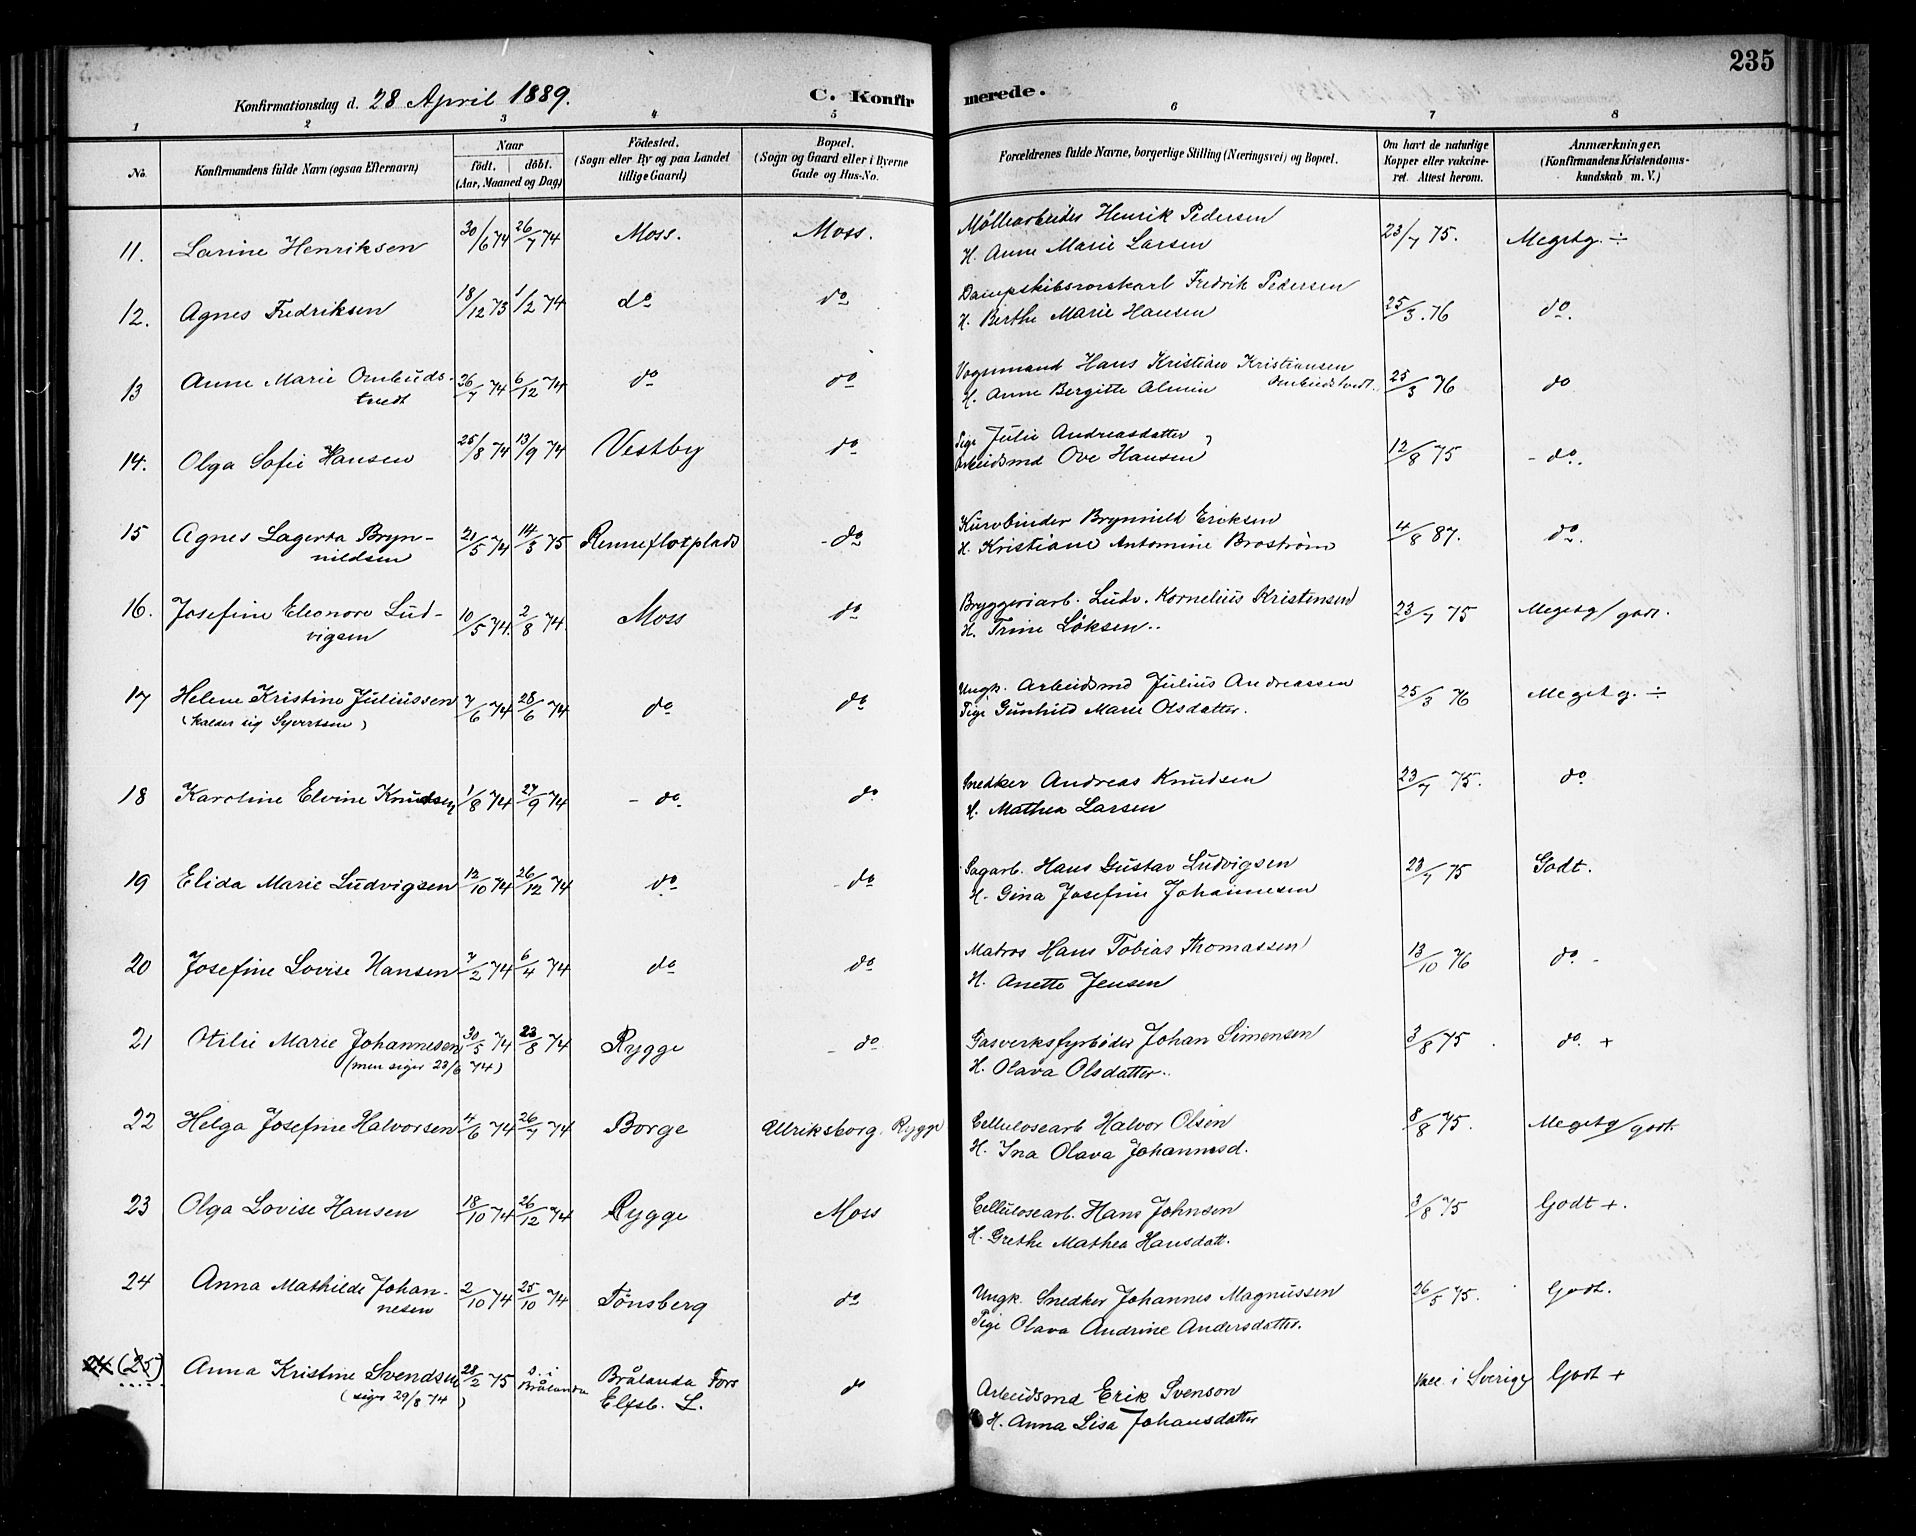 235
Konfirmationsdag d. 28 April 1889. C. Konfirmerede.
1 2 3 4 5 6 7 8
No. Konfirmandens fulde Navn (ogsaa Efternavn) Naar født. døbt. (Aar, Maaned og Dag) Fødested. (Sogn eller By og paa Landet tillige Gaard) Bopæl. (Sogn og Gaard eller i Byerne Gade og Hus-No. Forældrenes fulde Navne, borgerlige Stilling (Næringsvei) og Bopæl. Om havt de naturlige Kopper eller vakcineret. Attest herom. Anmærkninger. (Konfirmandens Kristendomskundskab m. V.)
11. Larine Henriksen 30/6 74 26/7 74 Moss. Moss. Møllearbeider Henrik Pedersen 23/7 75. Megetg. ÷
H. Anne Marie Larsen
12. Agnes Fredriksen 18/12 73 1/2 74 do do Dampskibsvorskarl Fredrik Pedersen 25/3. 76 do.
H. Berthe Marie Hansen
13 Anne Marie Ombuds- 26/7 74 6/12 74 do do Vognmand Hans Kristian Kristiansen 25/3 76 do
tvedt H. Anne Bergitte Almin Ombudstvedt.
14. Olga Sofie Hansen 25/8 74 13/9 74 Vestby do Pige Julie Andreasdatter 12/8 75 - do.
Arbeidsmd Ove Hansen
15 Agnes Lagerta Bryn- 21/5 74 14/3 75 Renneflotplads - do Kurvbinder Brynnild Eriksen 4/8 87. do.
nildsen H. Kristiane Antomine Brostrøm
16. Josefine Eleonore Lud- 10/5 74. 2/8 74. Moss do Bryggeriarb. Ludv. Kornelius Kristensen 23/7 75 Megetg/godt.
vigsen H. Trine Løksen..
17 Helene Kristine Juliussen 7/6 74 28/6 74 do do Ungk. Arbeidsmd Julius Andreassen 25/3 76 Megetg. ÷
(kalder sig Syvertsen) Pige Gunhild Marie Olsdatter.
18 Karoline Elvine Knudsen 1/8 74 27/9 74 - do. do Snedker Andreas Knudsen 23/7 75. do
H. Mathea Larsen
19 Elida Marie Ludvigsen 12/10 74 26/12 74 do - do Sagarb. Hans Gustav Ludvigsen 23/7 75 Godt.
H. Gina Josefine Johannesen
20 Josefine Lovise Hansen 7/2 74 6/4 74 do do Matros Hans Tobias Thomassen 13/10 76 do. -
H. Anette Jensen
21 Otilie Marie Johannesen 30/5 74 23/8 74 Rygge - do Gasverksfyrbøder Johan Simensen 3/8 75 do. +
(men siger 23/6 74) H. Olava Olsdatter.
22 Helga Josefine Halvorsen 4/6 74 26/7 74 Borge Ulriksborg. Rygge Cellulosearb Halvor Olsen 8/8 75. Megetg/godt.
H. Ina Olava Johannesd.
23 Olga Lovise Hansen 18/10 74 26/12 74 Rygge Moss Cellulosearb. Hans Johnsen 3/8 75 Godt +.
H. Grethe Mathea Hansdatt.
24 Anna Mathilde Johan- 2/10 74 25/10 74 Tønsberg do Ungk. Snedker Johannes Magnussen 26/5 75. Godt.
nesen Pige Olava Andrine Andersdatter.
24 (25) Anna Kristine Svendsen 28/2 75 s. i Brålanda Brålanda Fors do Arbeidsmd Erik Svenson Vacc. i Sverige Godt +
(siger 29/8 74) Elfsb. L. H. Anna Lisa Johansdatter